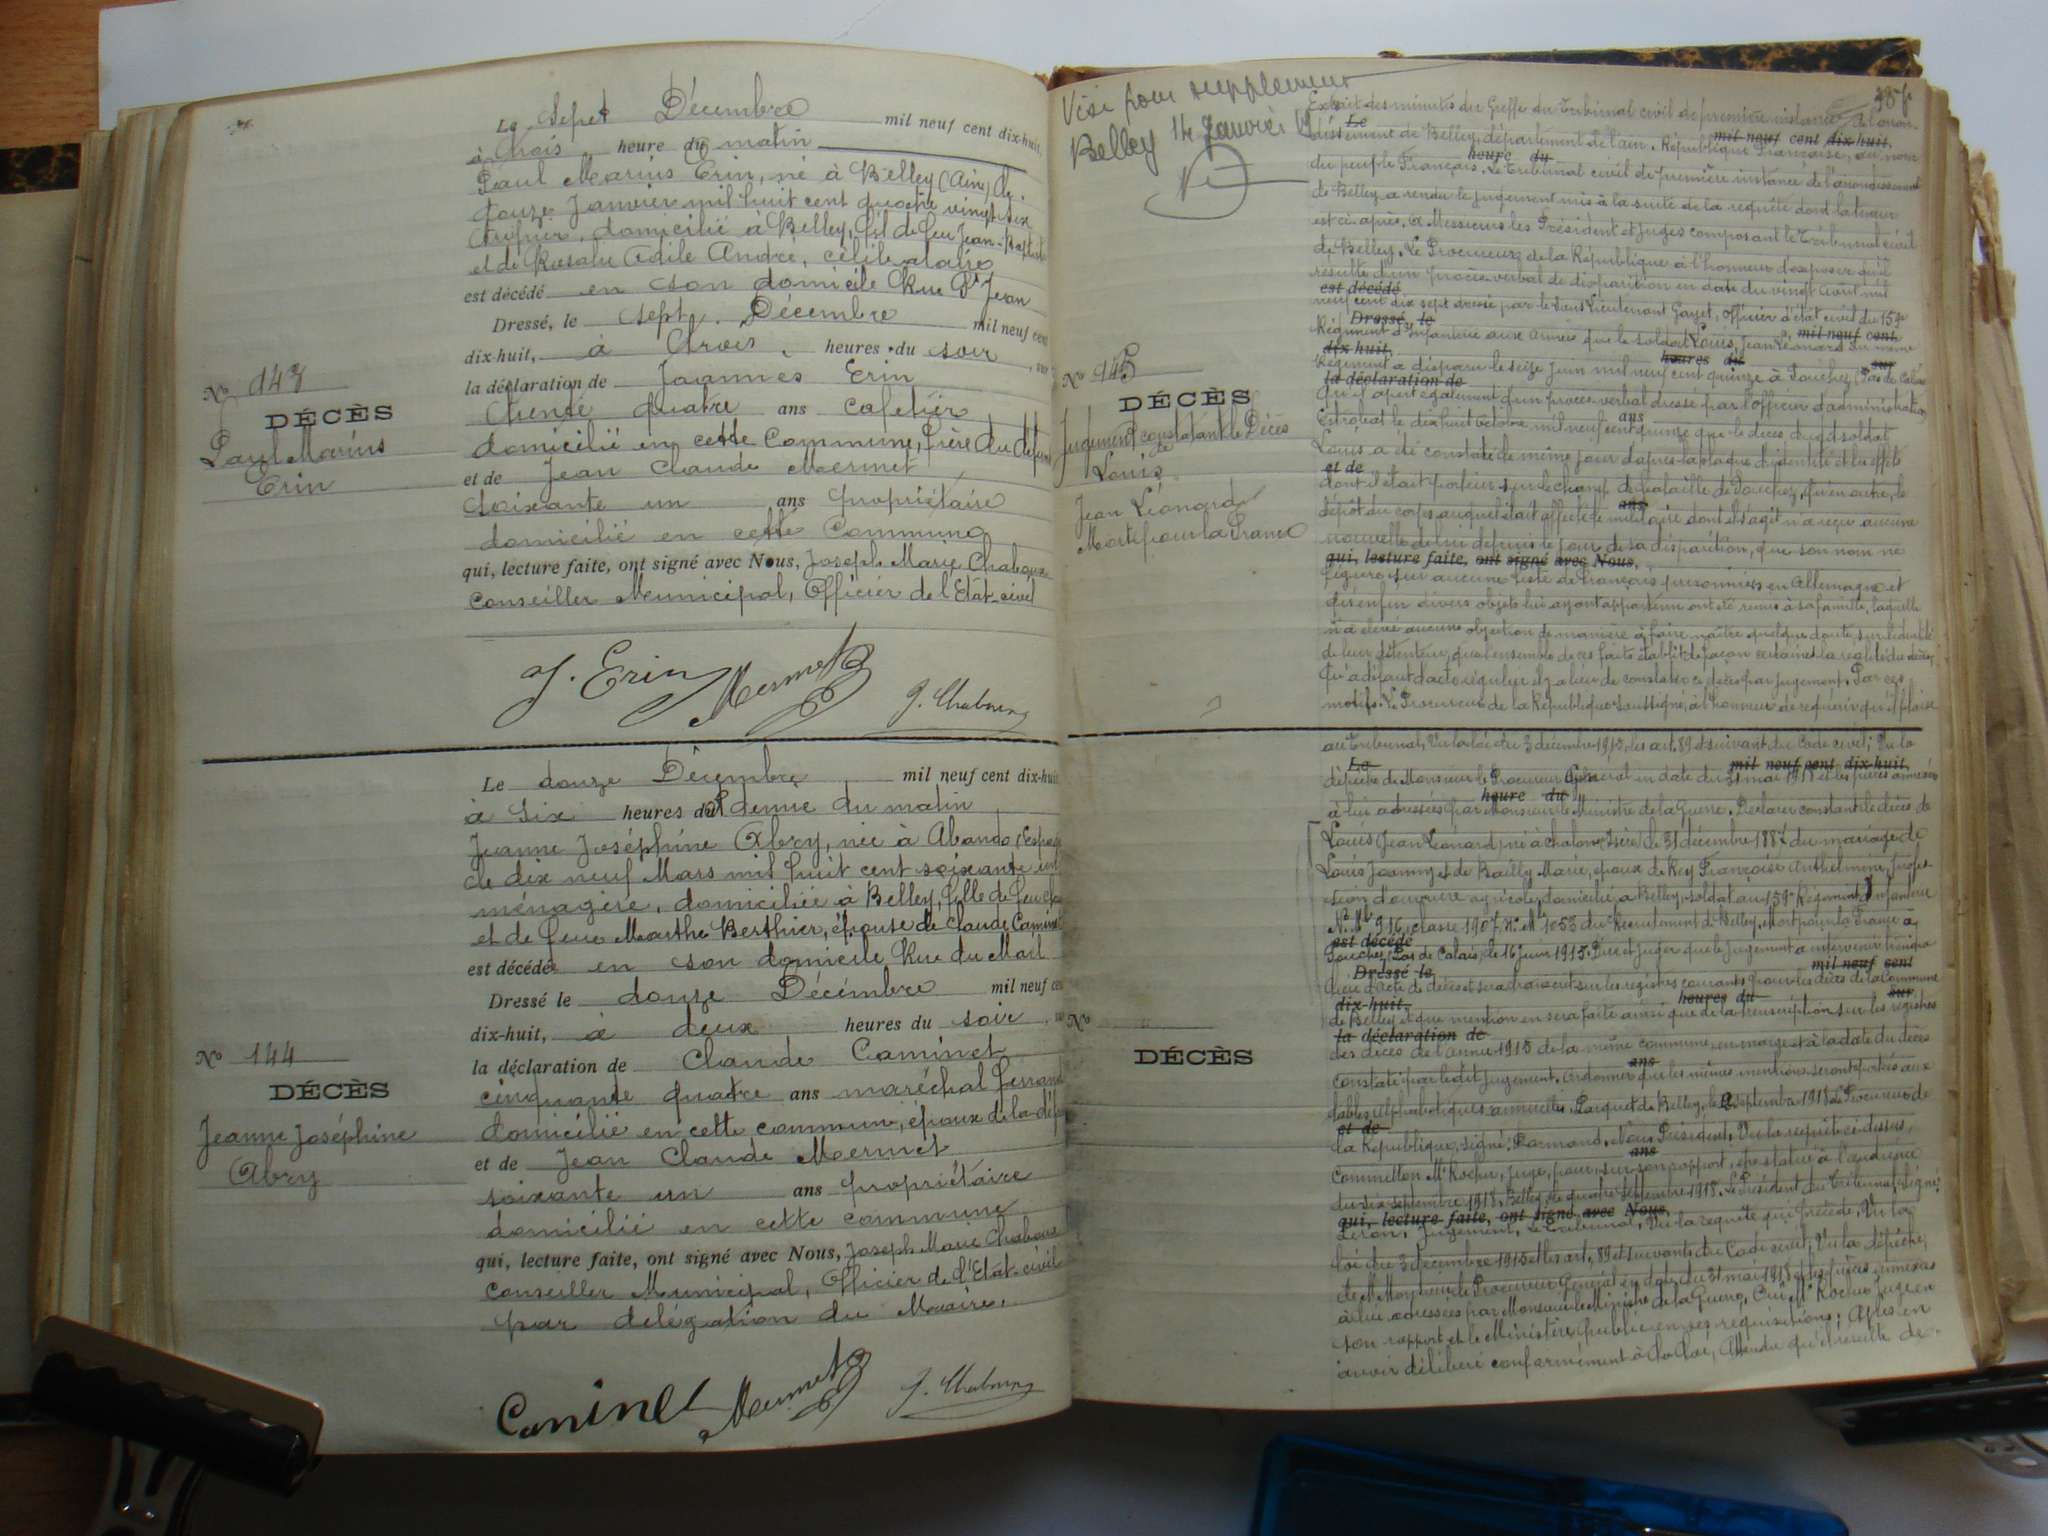 Le Sept Décembre mil neuf cent dix-huit,
à trois heure du matin
Paul Marius Erin, né à Belley (Ain) le
douze Janvier mil huit cent quatre vingt six
domicilié à Belley, fils de feu Jean-Baptiste
et de Rosalie Adile André, célibataire
est décédé en son domicile Rue St Jean
Dressé, le sept Décembre mil neuf cent
dix-huit, à trois heures du soir, sur
la déclaration de Joannes Erin
trente quatre ans cafetier
domicilié en cette Commune, frère du défunt
et de Jean Claude Mermet
soixante un ans propriétaire
domicilié en cette Commune
qui, lecture faite, ont signé avec Nous, Joseph Marie Chaboux
Conseiller Municipal, Officier de l'Etat-civil
J. Erin Mermet J. Chaboux
No 143
DÉCÈS
Paul Marius
Erin
Le douze Décembre mil neuf cent dix-huit
à six heures du et demie du matin
Jeanne Joséphine Abry, née à Abando (Espagne
le dix neuf Mars mil huit cent soixante
ménagère, domiciliée à Belley, fille de feu
et de feue Marthe Berthier, épouse de Claude Caminet
est décédée en son domicile Rue du Mail
Dressé le douze Décembre mil neuf cent
dix-huit, à deux heures du soir,
la déclaration de Claude Caminet
cinquante quatre ans maréchal ferrant
domicilié en cette commune, époux de la
et de Jean Claude Mermet
soixante un ans propriétaire
domicilié en cette commune
qui, lecture faite, ont signé avec Nous, Joseph Marie Chaboux
Conseiller Municipal, Officier de l'Etat-civil
par délégation du Maire.
Caminet Mermet J. Chaboux
No 144
DÉCÈS
Jeanne Joséphine
Abry
Visé pour supplément
Belley 14 Janvier
No 145
DÉCÈS
Jugement constatant le Décès
de
Louis
Jean Léonard
Mort pour la France
Extrait des minutes du Greffe du Tribunal civil de première instance de l'arron-
Le mil neuf cent dix-huit,
dissement de Belley, département de l'Ain. République Française, au nom
heure du
du peuple Français. Le Tribunal civil de première instance de l'arrondissement
de Belley a rendu le jugement mis à la suite de la requête dont la teneur
est ci-après. A Messieurs les Président et Juges composant le Tribunal civil
de Belley. Le Procureur de la République a l'honneur d'exposer qu'il
résulte d'un procès-verbal de disparition en date du vingt août mil
est décédé
neuf cent dix sept dressé par le Sous Lieutenant Gazet, officier d'état civil du 159e
Dressé, le mil neuf cent
Régiment d'Infanterie aux armées que le soldat Louis, Jean Léonard du même
dix-huit, heures du sur
Régiment a disparu le seize juin mil neuf cent quinze à Souchez (Pas de Calais
la déclaration de
Qu'il appert également d'un procès verbal dressé par l'officier d'administration
ans
le dix huit octobre mil neuf cent quinze que le décès dudit soldat
Louis a été constaté le même jour d'après la plaque d'identité et les effets
et de
dont il était porteur sur le champ de bataille de Souchez, qu'en outre, le
ans
dépôt du corps auquel était affecté le militaire dont il s'agit n'a reçu aucune
nouvelle de lui depuis le jour de sa disparition, que son nom ne
qui, lecture faite, ont signé avec Nous,
figure sur aucune liste de français prisonniers en Allemagne et
qu'enfin divers objets lui ayant appartenu ont été remis à sa famille, laquelle
n'a élevé aucune objection de manière à faire naître quelque doute sur l'identité
de leur détenteur, que l'ensemble de ces faits établit de façon certaine la réalité du décès,
Qu'à défaut d'acte régulier il y a lieu de constater ce décès par jugement. Par ces
motifs. Le Procureur de la République soussigné, a l'honneur de requérir qu'il plaise
au Tribunal, Vu la loi du 3 décembre 1915, les art. 89 et suivant du Code civil; Vu la
Le mil neuf cent dix-huit,
dépêche de Monsieur le Procureur Général en date du 31 mai 1918 et les pièces annexées
heure du
à lui adressées par Monsieur le Ministre de la Guerre. Déclarer constant le décès de
Louis (Jean Léonard), né à Chalons (Isère) le 31 décembre 1887 du mariage de
Louis Joanny et de Bailly Marie, époux de Rey Françoise Anthelmine, profes-
sion d'ouvrier agricole, domicilié à Belley, soldat au 159e Régiment d'Infanterie
No Mle 916, classe 1907, No Mle 1053 du Recrutement de Belley, Mort pour la France à
est décédé
Souchez (Pas de Calais) le 16 juin 1915. Dire et juger que le jugement à intervenir tiendra
Dressé le mil neuf cent
lieu d'acte de décès et sera transcrit sur les registres courants pour les décès de la Commune
dix-huit, heures du sur
de Belley et que mention en sera faite ainsi que de la transcription sur les registres
la déclaration de
des décès de l'année 1915 de la même commune, en marge et à la date du décès
ans
constaté par le dit jugement. Ordonner que les mêmes mentions seront portées aux
tables alphabétiques annuelles. Parquet de Belley, le 2 septembre 1918. Le Procureur de
et de
la République, signé: Nous Président. Vu la requête ci-dessus,
ans
Commettons Mr Rochas, juge, pour, sur son rapport, être statué à l'audience
du six septembre 1918. Belley, le quatre septembre 1918. Le Président du Tribunal, signé:
qui, lecture faite, ont signé avec Nous,
Jugement, Le Tribunal, Vu la requête qui précède, Vu la
loi du 3 décembre 1915 et les art. 89 et suivants du Code civil, Vu la dépêche,
de M. Monsieur le Procureur Général en date du 31 mai 1918 et les pièces annexées
à lui adressées par Monsieur le Ministre de la Guerre, Ouï Mr Rochas Juge en
son rapport et le Ministère public en ses réquisitions; Après en
avoir délibéré conformément à la loi, Attendu qu'il résulte de
No
DÉCÈS